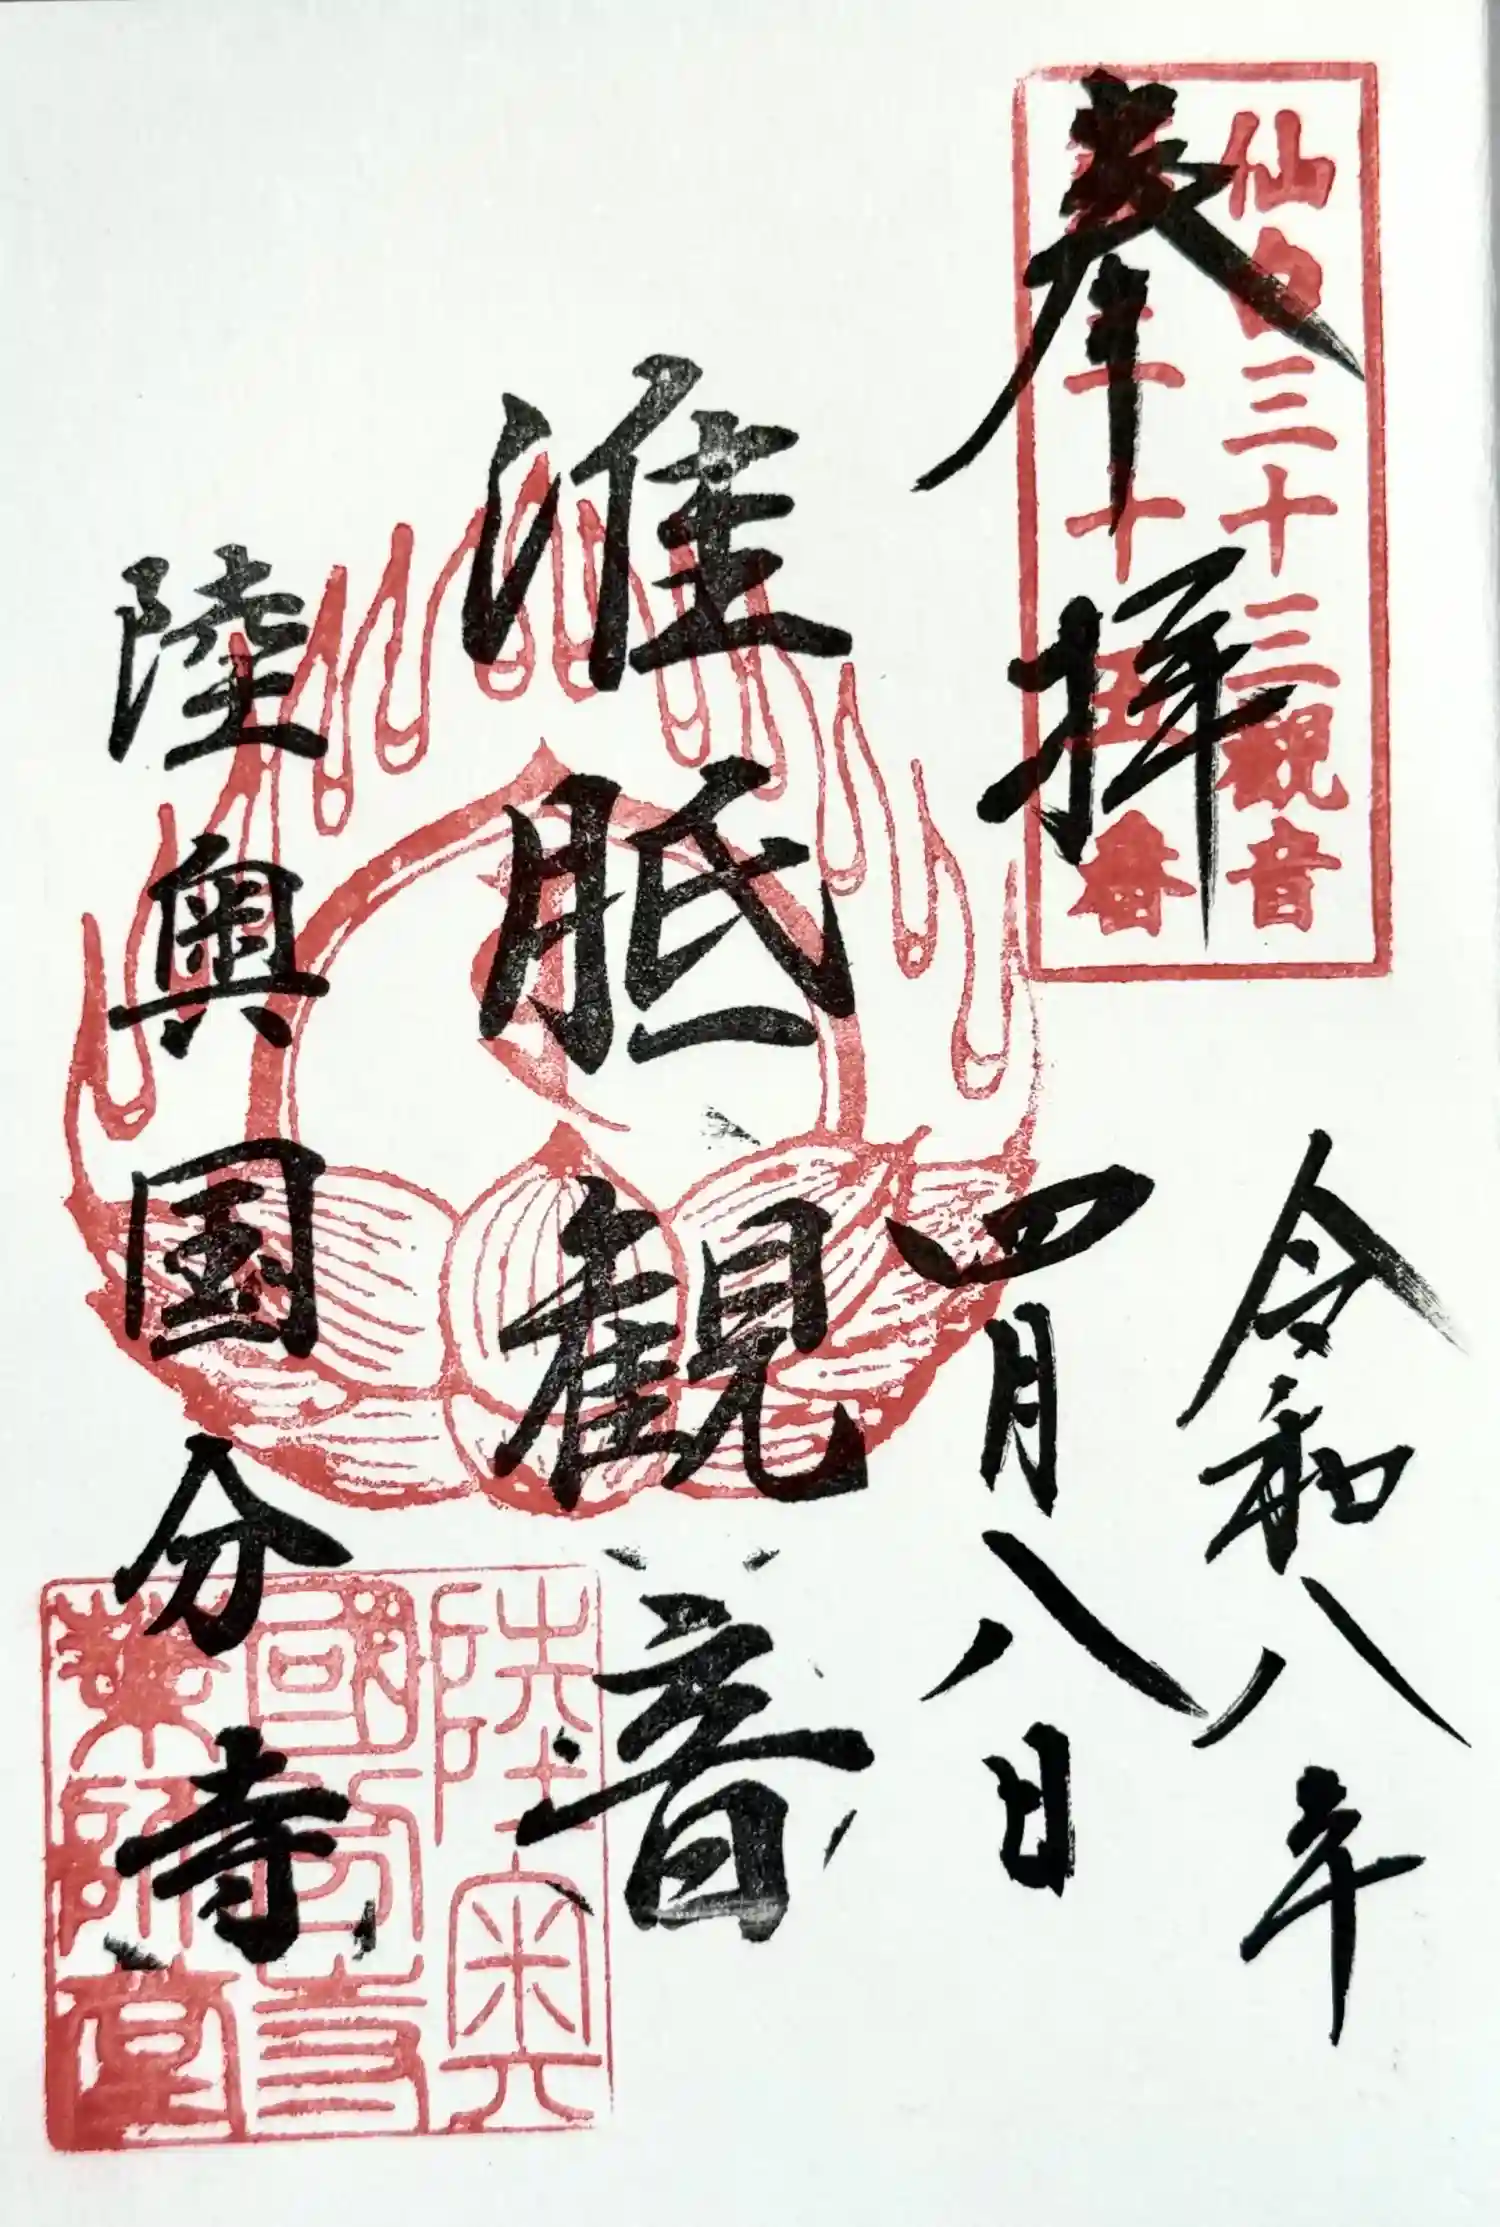 奉拝
仙台三十三観音
第二十五番
令和八年
四月八日
准胝観音
陸奥国分寺
陸奥
國分寺
薬師堂